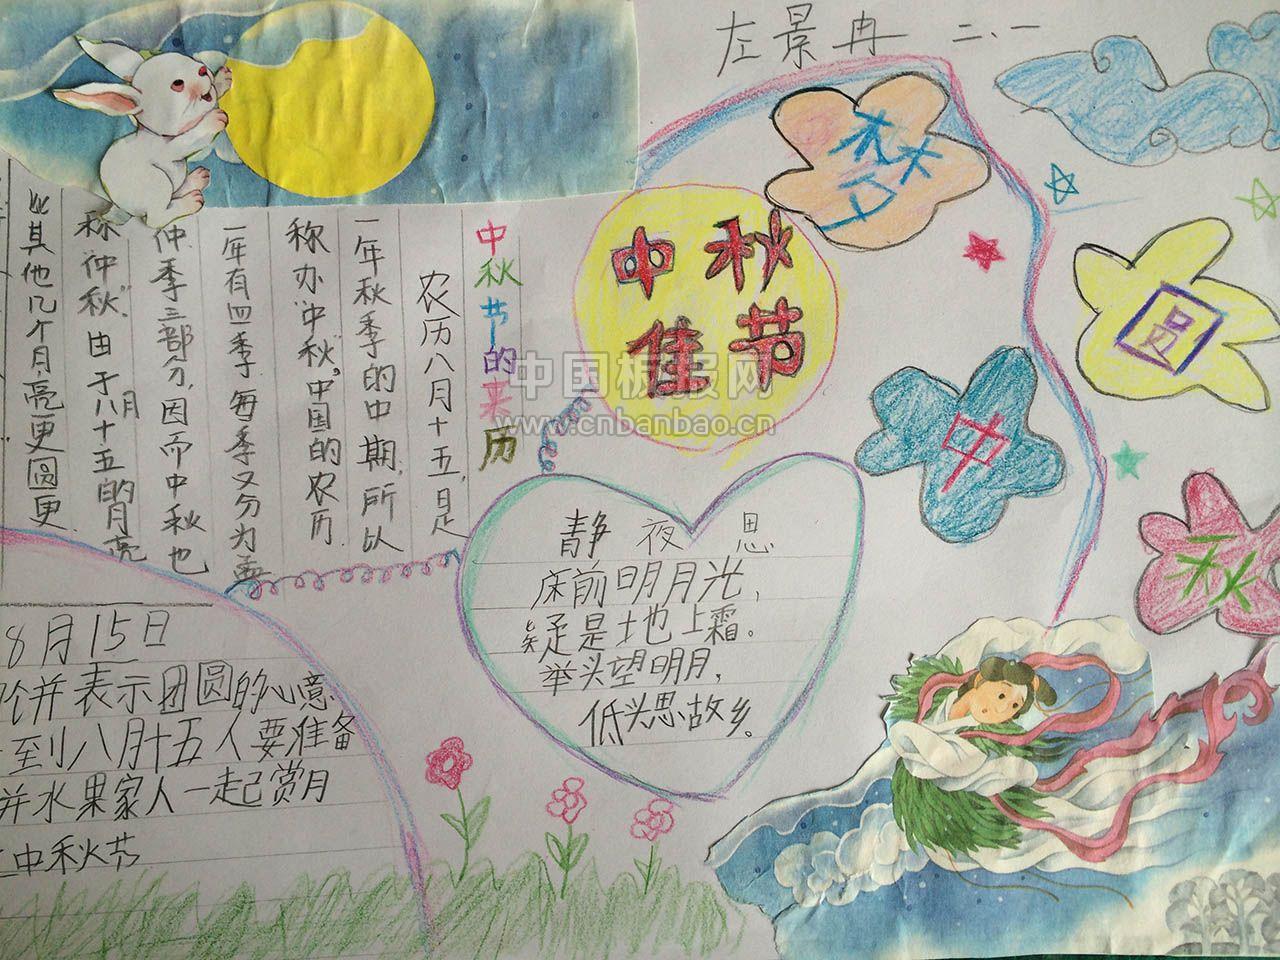 左景冉 二、一
梦
圆
中
秋
中秋
佳节
中国板报网
www.cnbanbao.cn
中秋节的来历
农历八月十五,日是
一年秋季的中期,所以
称办“中秋”。中国的农历
一年有四季,每季又分为孟
仲季三部分,因而中秋也
称“仲秋”。由于八月十五的月亮
比其他几个月亮更圆更
静夜思
床前明月光,
疑是地上霜。
举头望明月,
低头思故乡。
8月15日
饼表示团圆的心意
到八月十五人要准备
饼水果家人一起赏月
中秋节